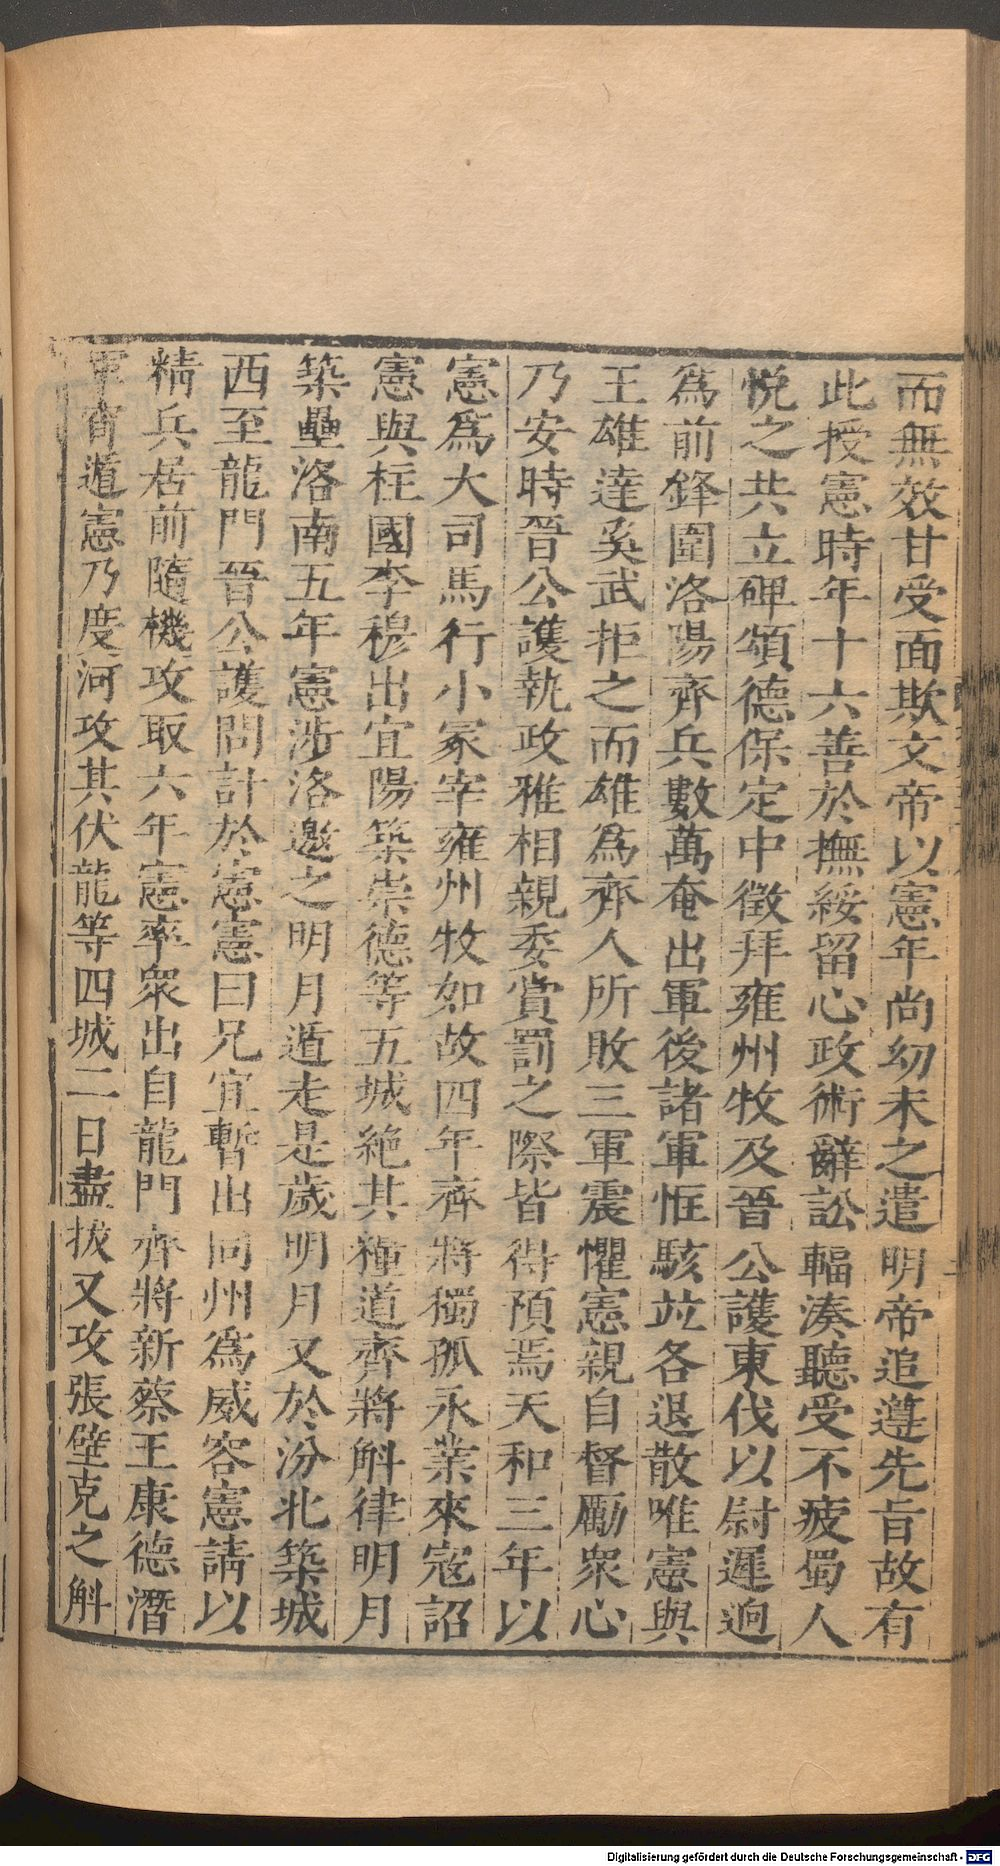 而無效甘受面欺文帝以憲年尚幼未之遣明帝追遵先旨故有
此授憲時年十六善於撫綏留心政術辭訟輻湊聽受不疲蜀人
悅之共立碑頌德保定中徵拜雍州牧及晉公護東伐以尉遲迥
爲前鋒圍洛陽齊兵數萬奄出軍後諸軍恇駭並各退散唯憲與
王雄達奚武拒之而雄爲齊人所敗三軍震懼憲親自督勵衆心
乃安時晉公護執政雅相親委賞罰之際皆得預焉天和三年以
憲爲大司馬行小冢宰雍州牧如故四年齊將獨孤永業來寇詔
憲與柱國李穆出宜陽築崇德等五城絶其糧道齊將斛律明月
築壘洛南五年憲涉洛邀之明月遁走是歲明月又於汾北築城
西至龍門晉公護問計於憲憲曰兄宜暫出同州爲威容憲請以
精兵居前隨機攻取六年憲率衆出自龍門齊將新蔡王康德潛
軍宵遁憲乃度河攻其伏龍等四城二日盡拔又攻張壁克之斛
Digitalisierung gefördert durch die Deutsche Forschungsgemeinschaft - DFG